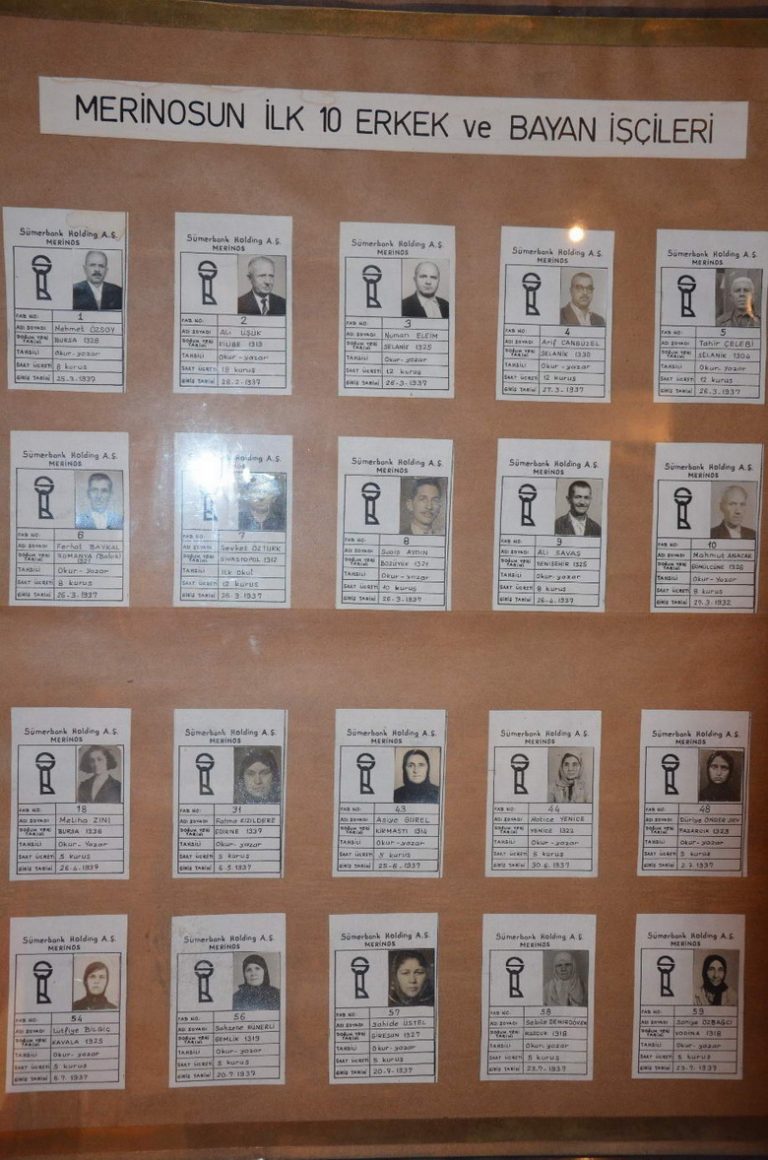 MERİNOSUN İLK 10 ERKEK ve BAYAN İŞÇİLERİ
Sümerbank Holding A.Ş.
MERİNOS
FAB NO: 1
ADI SOYADI Mehmet ÖZSOY
DOĞUM YERİ TARİHİ BURSA 1328
TAHSİLİ Okur-yazar
SAAT ÜCRETİ 8 kuruş
GİRİŞ TARİHİ 25.3.1937
Sümerbank Holding A.Ş.
MERİNOS
FAB NO: 2
ADI SOYADI Ali UŞUK
DOĞUM YERİ TARİHİ FİLİBE 1313
TAHSİLİ Okur-yazar
SAAT ÜCRETİ 18 kuruş
GİRİŞ TARİHİ 26.2.1937
Sümerbank Holding A.Ş.
MERİNOS
FAB NO: 3
ADI SOYADI Numan
DOĞUM YERİ TARİHİ SELANİK 1325
TAHSİLİ Okur-yazar
SAAT ÜCRETİ 12 kuruş
GİRİŞ TARİHİ 26.3.1937
Sümerbank Holding A.Ş.
MERİNOS
FAB NO: 4
ADI SOYADI Arif CANGÜZEL
DOĞUM YERİ TARİHİ SELANİK 1330
TAHSİLİ Okur-yazar
SAAT ÜCRETİ 12 kuruş
GİRİŞ TARİHİ 27.3.1937
Sümerbank Holding A.Ş.
MERİNOS
FAB NO: 5
ADI SOYADI Tahir ÇELEBİ
DOĞUM YERİ TARİHİ SELANİK 1304
TAHSİLİ Okur-yazar
SAAT ÜCRETİ 12 kuruş
GİRİŞ TARİHİ 26.3.1937
Sümerbank Holding A.Ş.
MERİNOS
FAB NO: 6
ADI SOYADI Ferhat BAYKAL
DOĞUM YERİ TARİHİ ROMANYA 1327
TAHSİLİ Okur-yazar
SAAT ÜCRETİ 8 kuruş
GİRİŞ TARİHİ 26.3.1937
Holding A.Ş.
FAB NO: 7
ADI SOYADI Şevket ÖZTÜRK
DOĞUM YERİ TARİHİ SİVASTOPOL 1312
TAHSİLİ İlk okul
SAAT ÜCRETİ 12 kuruş
GİRİŞ TARİHİ 26.3.1937
Sümerbank Holding A.Ş.
MERİNOS
FAB NO: 8
ADI SOYADI AYDIN
DOĞUM YERİ TARİHİ BOZÜYÜK 1321
TAHSİLİ Okur-yazar
SAAT ÜCRETİ 10 kuruş
GİRİŞ TARİHİ 26.3.1937
Sümerbank Holding A.Ş.
MERİNOS
FAB NO: 9
ADI SOYADI Ali SAVAŞ
DOĞUM YERİ TARİHİ YENİŞEHİR 1325
TAHSİLİ Okur-yazar
SAAT ÜCRETİ 8 kuruş
GİRİŞ TARİHİ 1937
Sümerbank Holding A.Ş.
MERİNOS
FAB NO: 10
ADI SOYADI Mahmut
DOĞUM YERİ TARİHİ 1326
TAHSİLİ Okur-yazar
SAAT ÜCRETİ 8 kuruş
GİRİŞ TARİHİ 27.3.1932
Sümerbank Holding A.Ş.
MERİNOS
FAB NO: 18
ADI SOYADI Meliha ZİNİ
DOĞUM YERİ TARİHİ BURSA 1336
TAHSİLİ Okur-Yazar
SAAT ÜCRETİ 5 kuruş
GİRİŞ TARİHİ 26.4.1937
Sümerbank Holding A.Ş.
MERİNOS
FAB NO: 31
ADI SOYADI Fatma KIZILDERE
DOĞUM YERİ TARİHİ EDİRNE 1337
TAHSİLİ Okur-yazar
SAAT ÜCRETİ 5 kuruş
GİRİŞ TARİHİ 6.5.1937
Sümerbank Holding A.Ş.
MERİNOS
FAB NO: 43
ADI SOYADI Asiye GÜREL
DOĞUM YERİ TARİHİ KİRMASTI 1314
TAHSİLİ Okur-yazar
SAAT ÜCRETİ 5 kuruş
GİRİŞ TARİHİ 25.6.1937
Sümerbank Holding A.Ş.
MERİNOS
FAB NO: 44
ADI SOYADI Hatice YENİCE
DOĞUM YERİ TARİHİ YENİCE 1322
TAHSİLİ Okur-yazar
SAAT ÜCRETİ 5 kuruş
GİRİŞ TARİHİ 30.6.1937
Sümerbank Holding A.Ş.
MERİNOS
FAB NO: 48
ADI SOYADI Düriye ÖNDER ŞEV
DOĞUM YERİ TARİHİ PAZARCIK 1323
TAHSİLİ Okur-yazar
SAAT ÜCRETİ 5 kuruş
GİRİŞ TARİHİ 2.7.1937
Sümerbank Holding A.Ş.
MERİNOS
FAB NO: 54
ADI SOYADI Lütfiye BİLGİÇ
DOĞUM YERİ TARİHİ KAVALA 1325
TAHSİLİ Okur-yazar
SAAT ÜCRETİ 5 kuruş
GİRİŞ TARİHİ 6.7.1937
Sümerbank Holding A.Ş.
MERİNOS
FAB NO: 56
ADI SOYADI HÜNERLİ
DOĞUM YERİ TARİHİ GEMLİK 1319
TAHSİLİ Okur-yazar
SAAT ÜCRETİ 5 kuruş
GİRİŞ TARİHİ 20.7.1937
Sümerbank Holding A.Ş.
MERİNOS
FAB NO: 57
ADI SOYADI Şahide ÜSTEL
DOĞUM YERİ TARİHİ GİRESUN 1327
TAHSİLİ Okur-yazar
SAAT ÜCRETİ 5 kuruş
GİRİŞ TARİHİ 20.7.1937
Sümerbank Holding A.Ş.
MERİNOS
FAB NO: 58
ADI SOYADI DEMİRDÖVEN
DOĞUM YERİ TARİHİ 1318
TAHSİLİ Okur-yazar
SAAT ÜCRETİ 5 kuruş
GİRİŞ TARİHİ 23.7.1937
Sümerbank Holding A.Ş.
MERİNOS
FAB NO: 59
ADI SOYADI ÖZBAĞCI
DOĞUM YERİ TARİHİ VODİNA 1318
TAHSİLİ Okur-yazar
SAAT ÜCRETİ 5 kuruş
GİRİŞ TARİHİ 23.7.1937